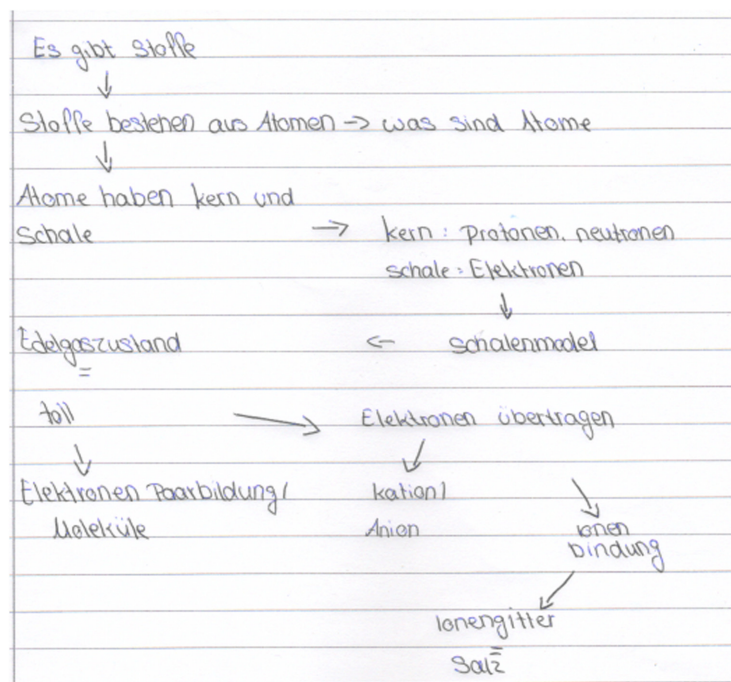 Es gibt Stoffe
↓
Stoffe bestehen aus Atomen -> was sind Atome
↓
Atome haben kern und
Schale -> kern: Protonen, neutronen
schale: Elektronen
↓
Edelgaszustand <- Schalenmodel
=
toll -> Elektronen übertragen
↓ ↓ ↓
Elektronen Paarbildung/ kation/
Moleküle Anion Ionen
bindung
↓
Ionengitter
=
Salz